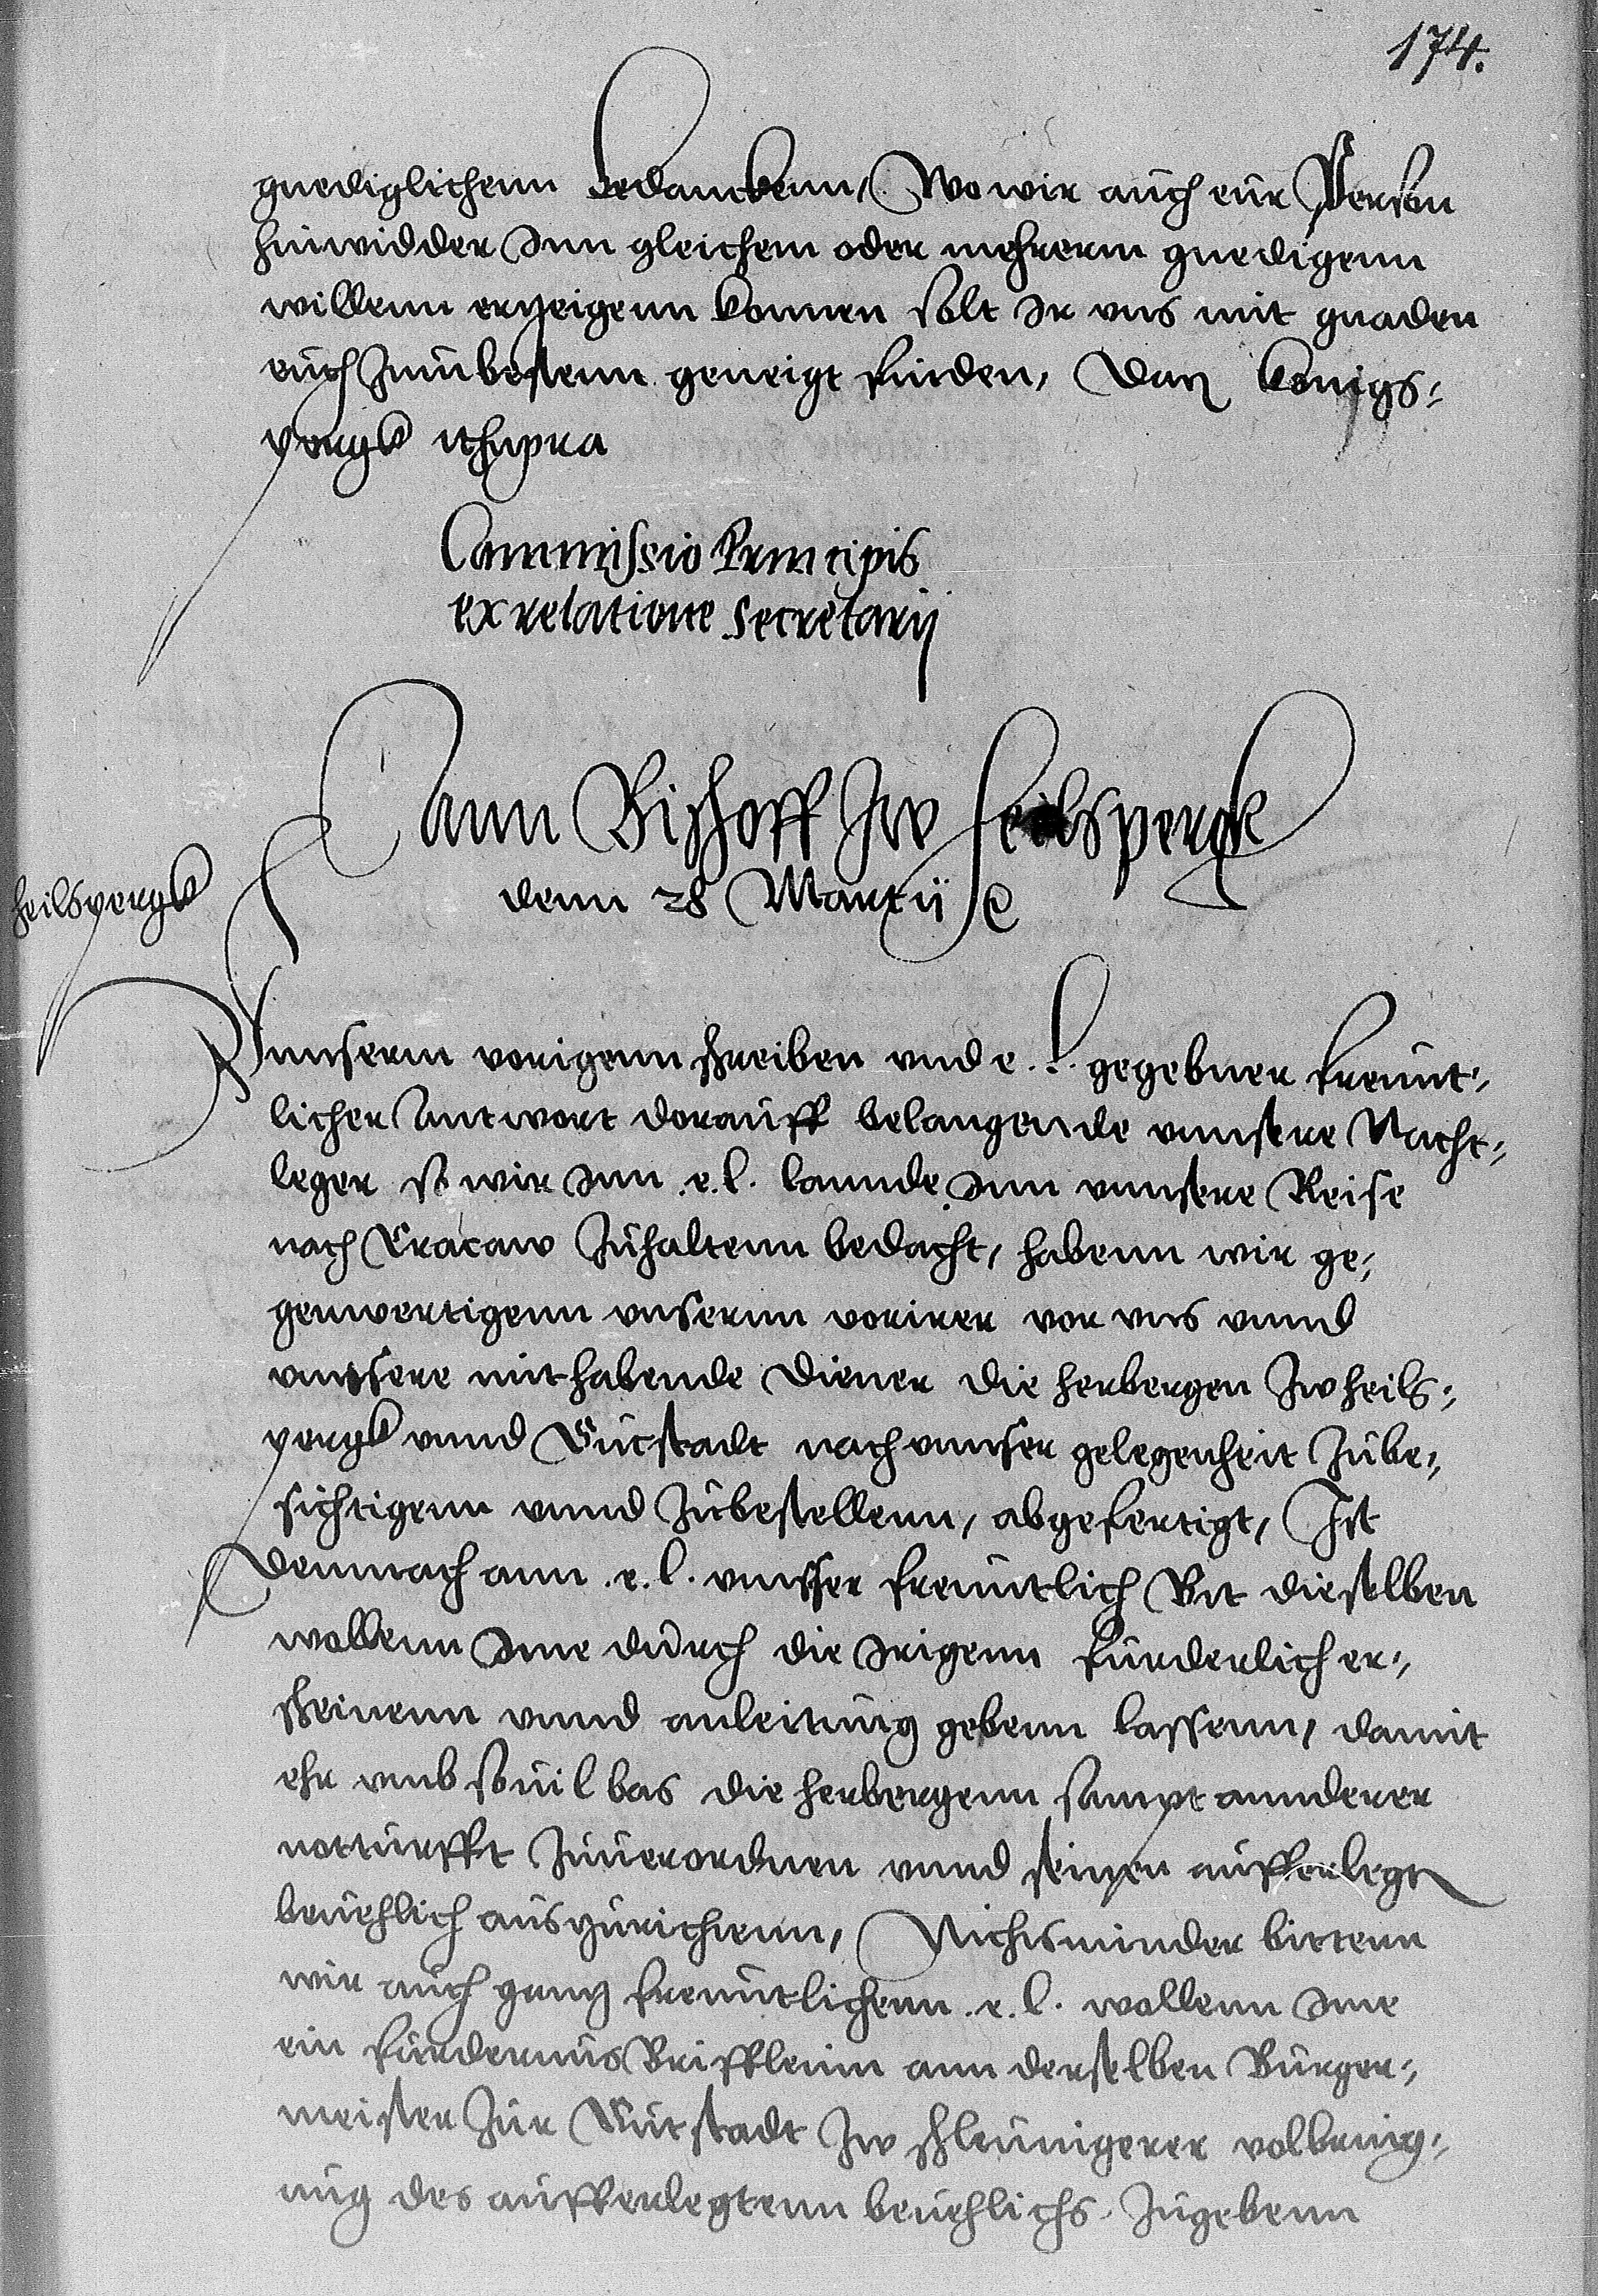 174.
gnediglichenn bedanckenn, Wo wir auch eur Person
hinwidder Inn gleichem oder mehrerm gnedigenn
willenn erzeigenn konnen solt Ir vns mit gnaden
euch zuuubestenn geneigt finden, Datz Konigs=
pergk vtsupra
Commissio Principis
ex relatione Secretarij
Ann Bischoff zw Heilspergk
denn 28 Martij
heilspergk
Vnnserm vorigenn schreiben vnd e. l. gegebner freunt=
licher Antwort dorauff belangende vnnsere Nacht=
leger so wir Inn e. l. lannde Inn vnnsere Reise
nach Cracaw zuhaltenn bedacht, habenn wir ge=
genwertigenn vnsernn vorirer vor vns vnnd
vnnsere mithabende diener die herbergen zw heils=
pergk vnnd Gutstadt nach vnnser gelegenheit zube=
sichtigenn vnnd zubestellenn, abgefertigt, Ist
demnach ann e. l. vnnsser freuntlich Bit dieselben
wollenn Ime durch die Irigenn furderlich er=
scheinenn vnnd anleitung gebenn lassenn, damit
ehr vmb souil bas die herbergenn sampt annderer
notturfft zuuerordnen vnnd seinen aufferlegten
beuehlich auszurichtenn, Nichsminder bittenn
wir auch gantz freuntlichenn e. l. wollenn Ime
ein furdernus Brifflein ann derselben Burger=
meister zur Gutstadt zw schleunigerer volbring=
ung des aufferlegtenn beuehlichs zugebenn